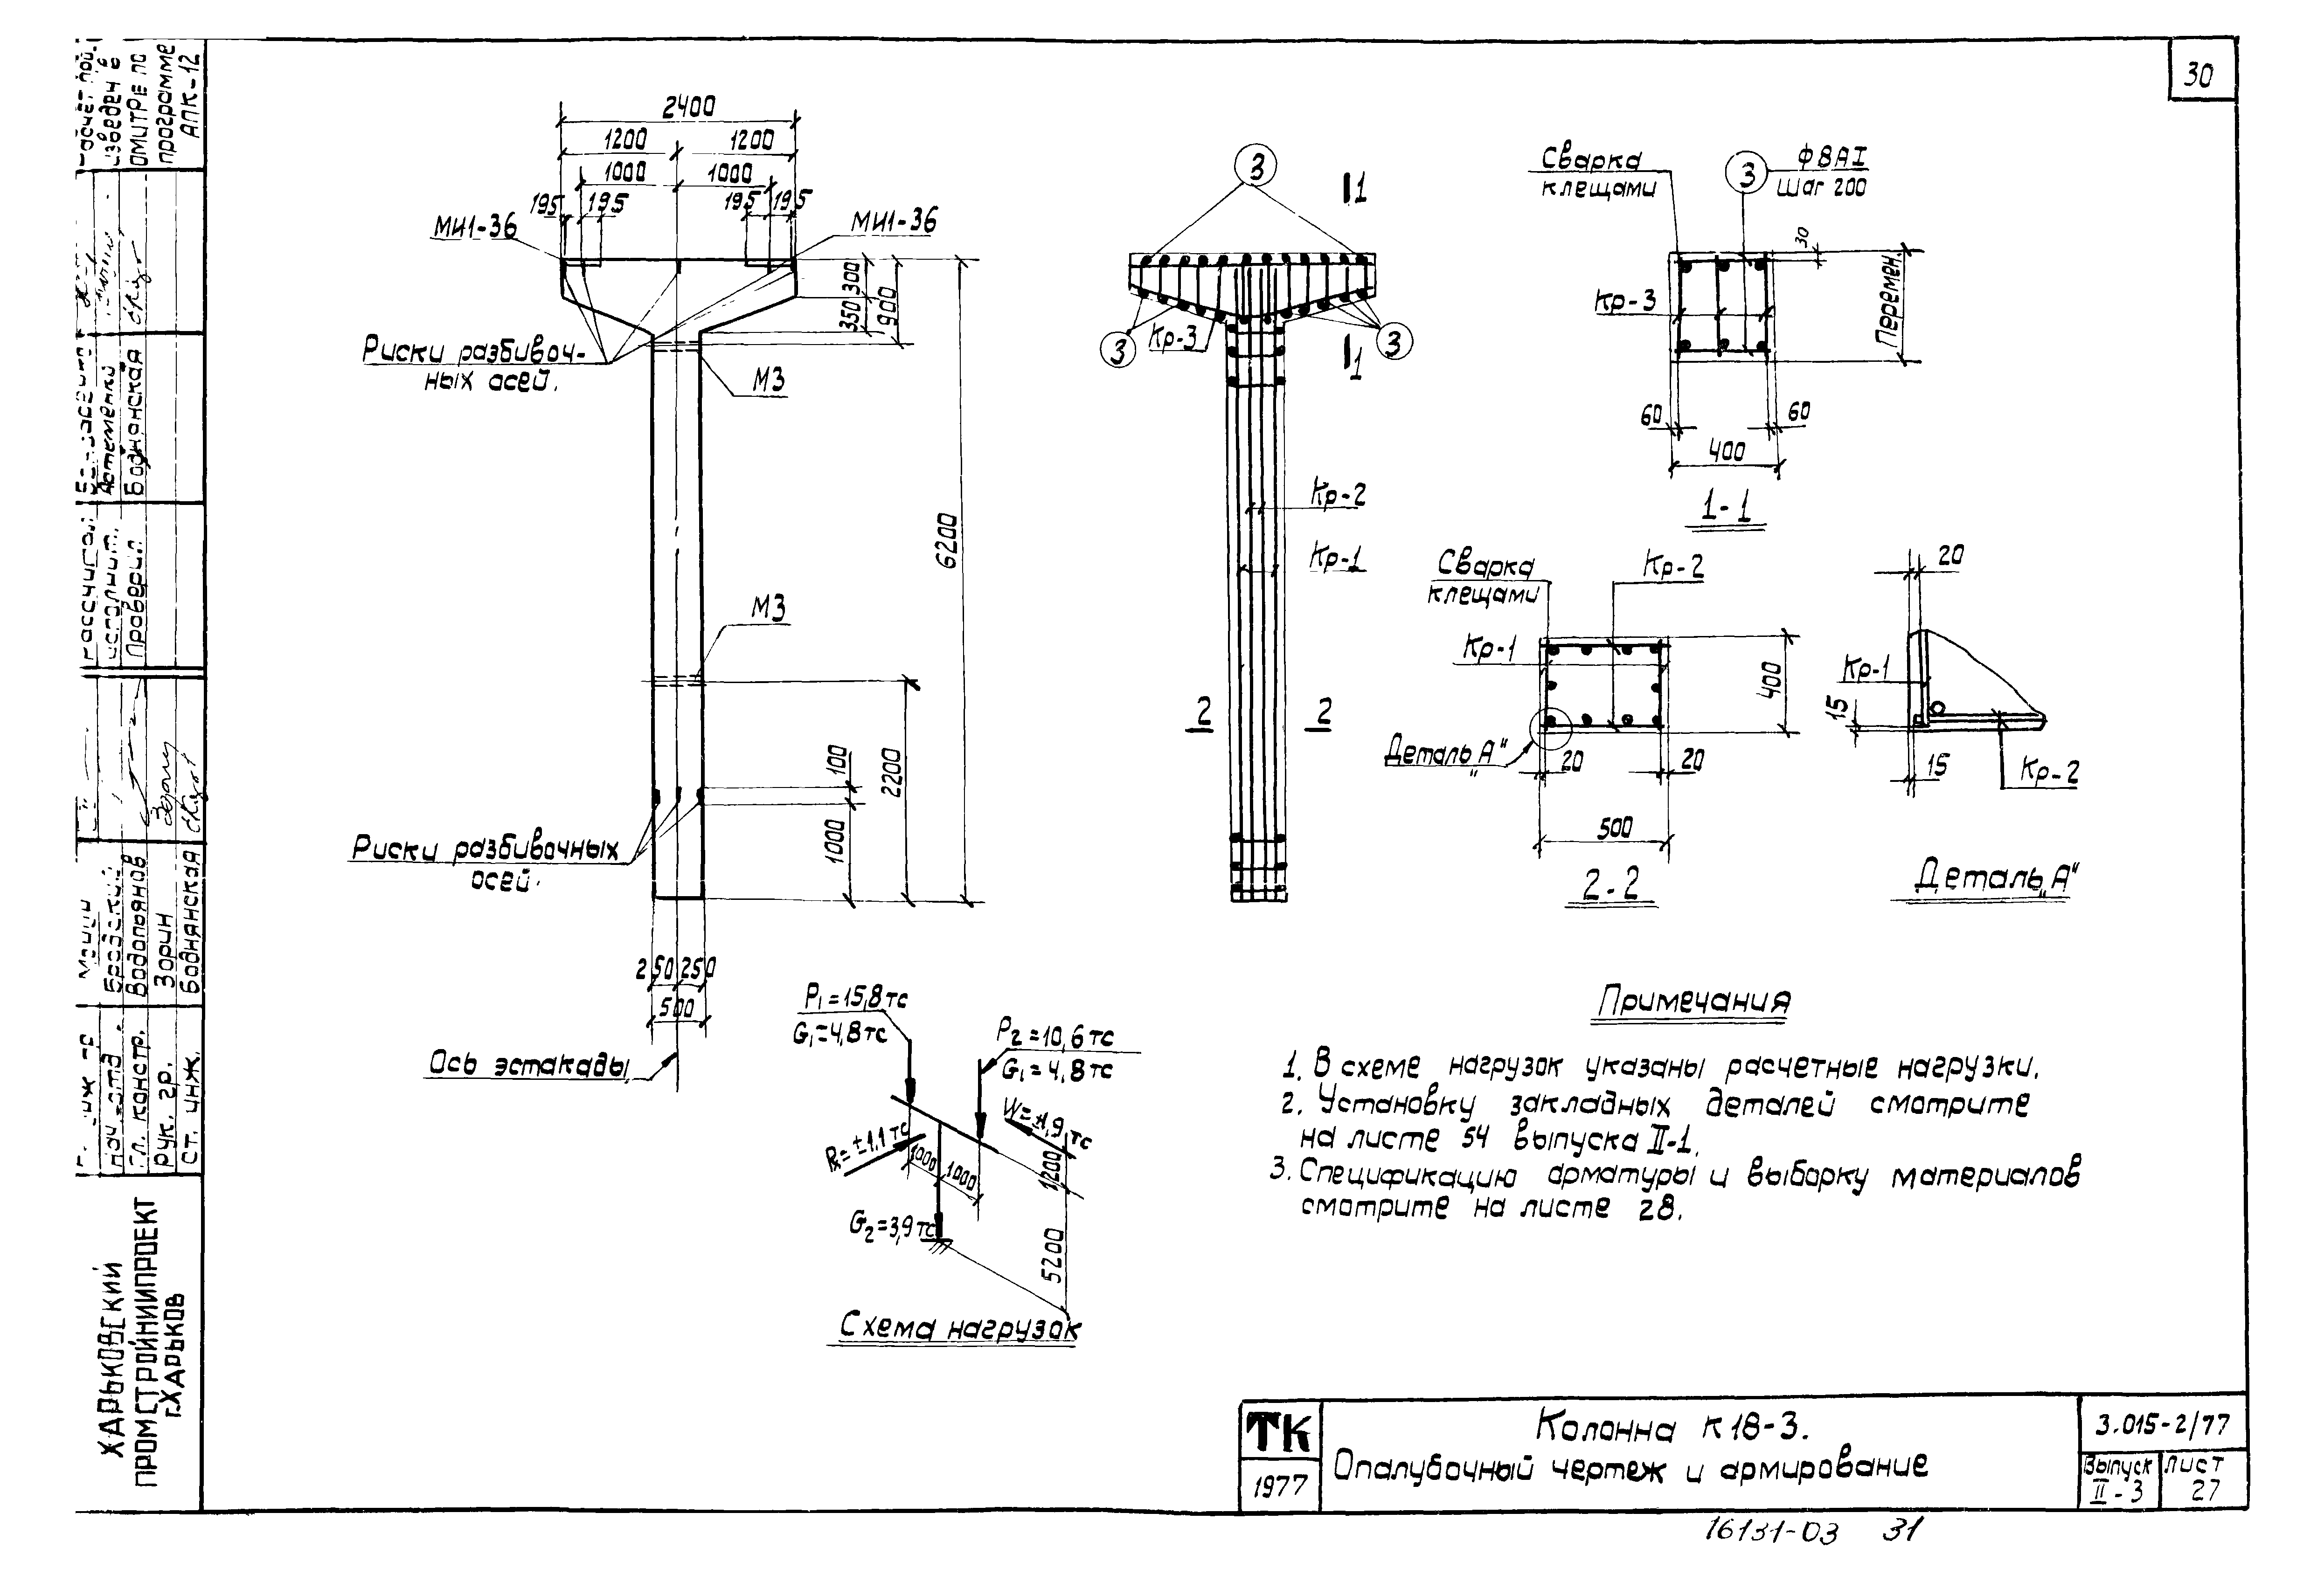 30
2400
1200
1200
1000
1000
195
195
195
195
МИ1-36
МИ1-36
300
350
900
Риски разбивоч-
ных осей.
М3
6200
М3
100
1000
2200
Риски разбивочных
осей.
250
250
500
Ось эстакады
3
1
3
Кр-3
3
1
Кр-2
Кр-1
2
2
Сварка
клещами
3
Ф8АI
Шаг 200
30
Кр-3
Перемен.
60
60
400
1-1
Сварка
клещами
Кр-2
Кр-1
400
Деталь „А"
20
20
500
2-2
20
Кр-1
15
15
Кр-2
Деталь „А"
P1=15,8тс
G1=4,8тс
P2=10,6тс
G1=4,8тс
W=±1,9тс
=±1,1тс
1000
1000
1200
G2=3,9тс
5200
Схема нагрузок
Примечания
1. В схеме нагрузок указаны расчетные нагрузки.
2. Установку закладных деталей смотрите
на листе 54 выпуска II-1.
3. Спецификацию арматуры и выборку материалов
смотрите на листе 28.
ТК
1977
Колонна К18-3.
Опалубочный чертеж и армирование
3.015-2/77
Выпуск
II-3
Лист
27
16131-03 31
ОМИТРЕ по
программе
АПК-12
Артеменко
Боднянская
Проверил
Бродский
Водопоянов
Зорин
Боднянская
Нач. отд.
Гл. констр.
Рук. гр.
Ст. инж.
ХАРЬКОВСКИЙ
ПРОМСТРОЙНИИПРОЕКТ
г.ХАРЬКОВ